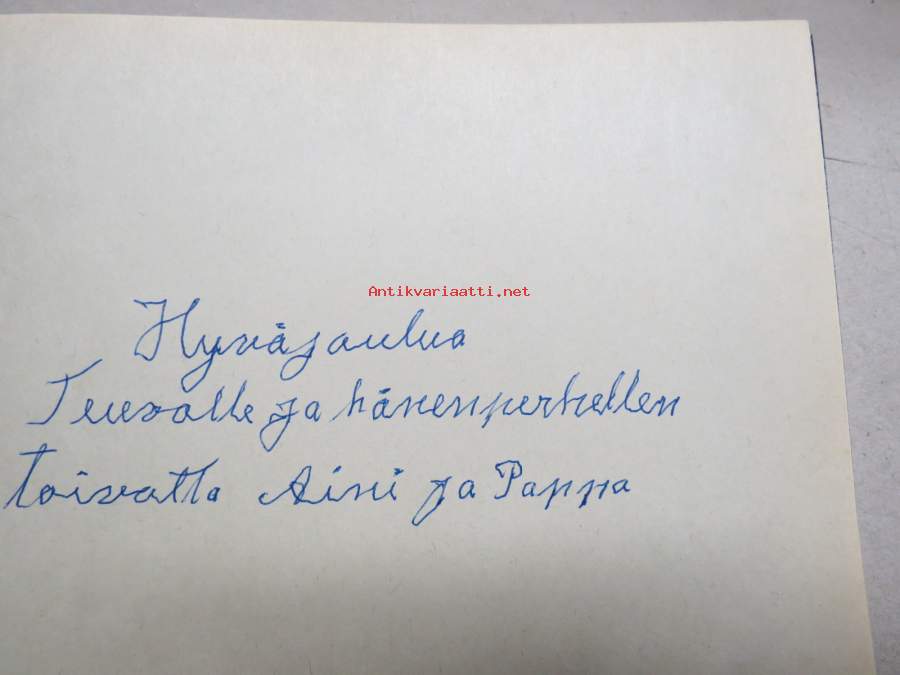 Antikvariaatti.net
Hyväjoulua
Teuvolle ja hänenperhellen
toivotta Aini ja Pappa